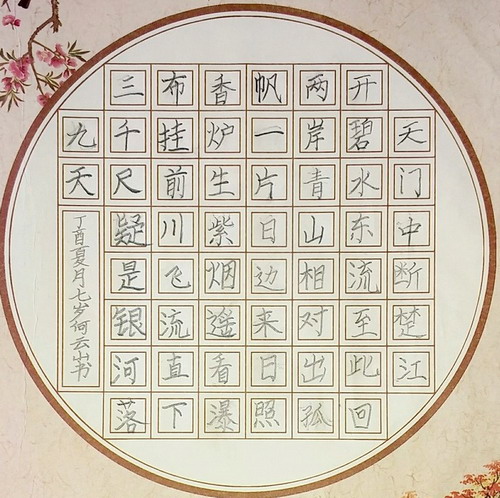 天门中断楚江
开碧水东流至此回
两岸青山相对出孤
帆一片日边来日照
香炉生紫烟遥看瀑
布挂前川飞流直下
三千尺疑是银河落
九天
丁酉夏月七岁何云山书